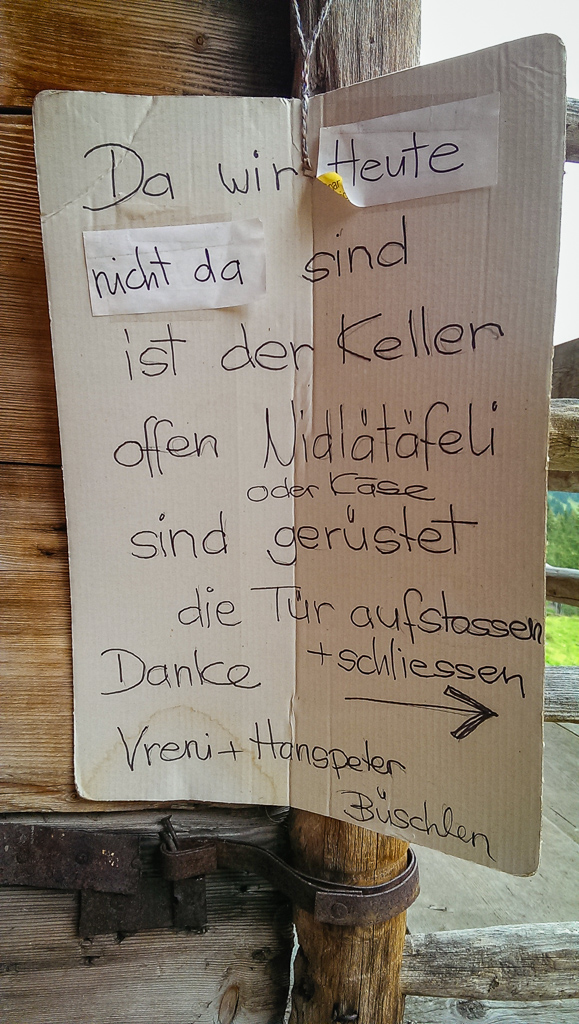 Da wir Heute
nicht da sind
ist der Keller
offen Nidlätäfeli
oder Käse
sind gerüstet
die Tür aufstossen
+ schliessen
Danke
Vreni + Hanspeter
Büschlen